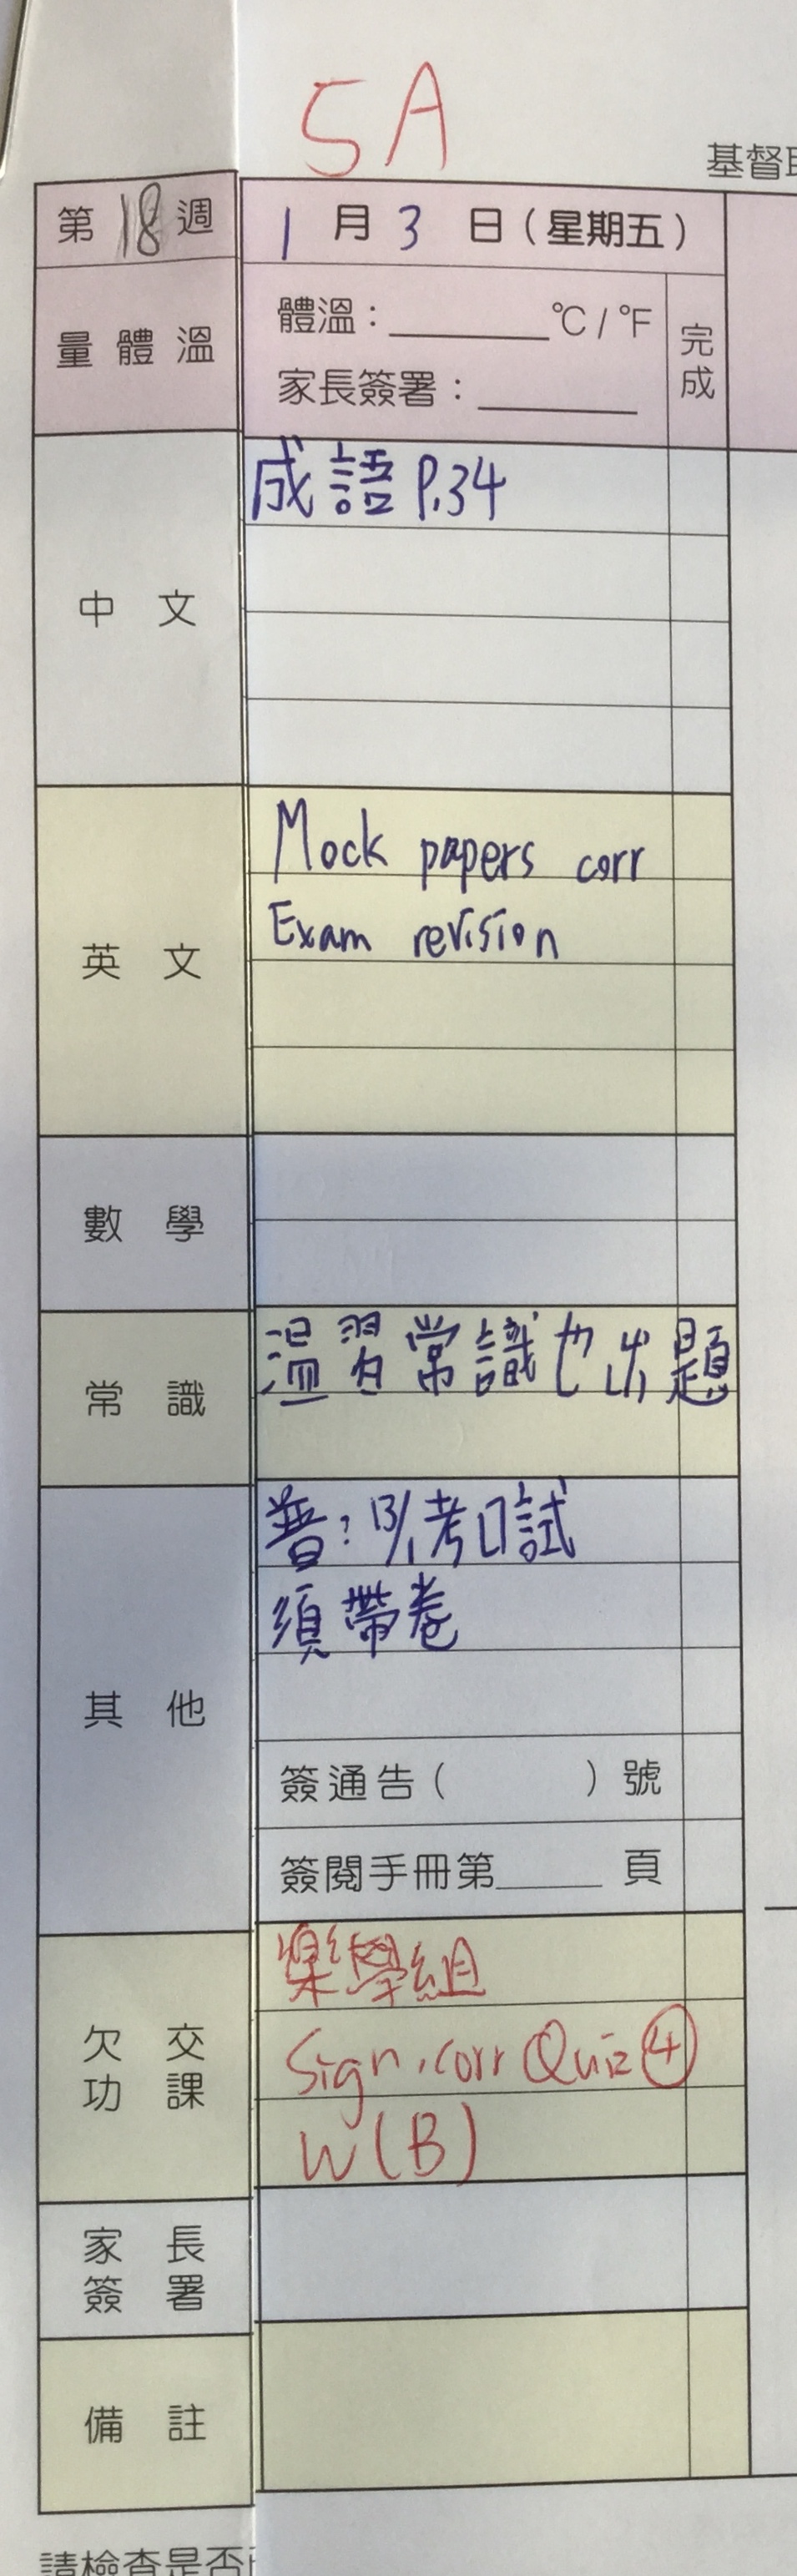 5A
基督
第18週
1月3日（星期五）
量體溫
體溫：______°C/°F
家長簽署：______
完成
中文
成語 P.34
英文
Mock papers corr
Exam revision
數學
常識
溫習常識 出題
其他
普：13/1考口試
須帶卷
簽通告（ ）號
簽閱手冊第____頁
欠交功課
樂學組
Sign, corr Quiz ④
W(B)
家長簽署
備註
請檢查是否